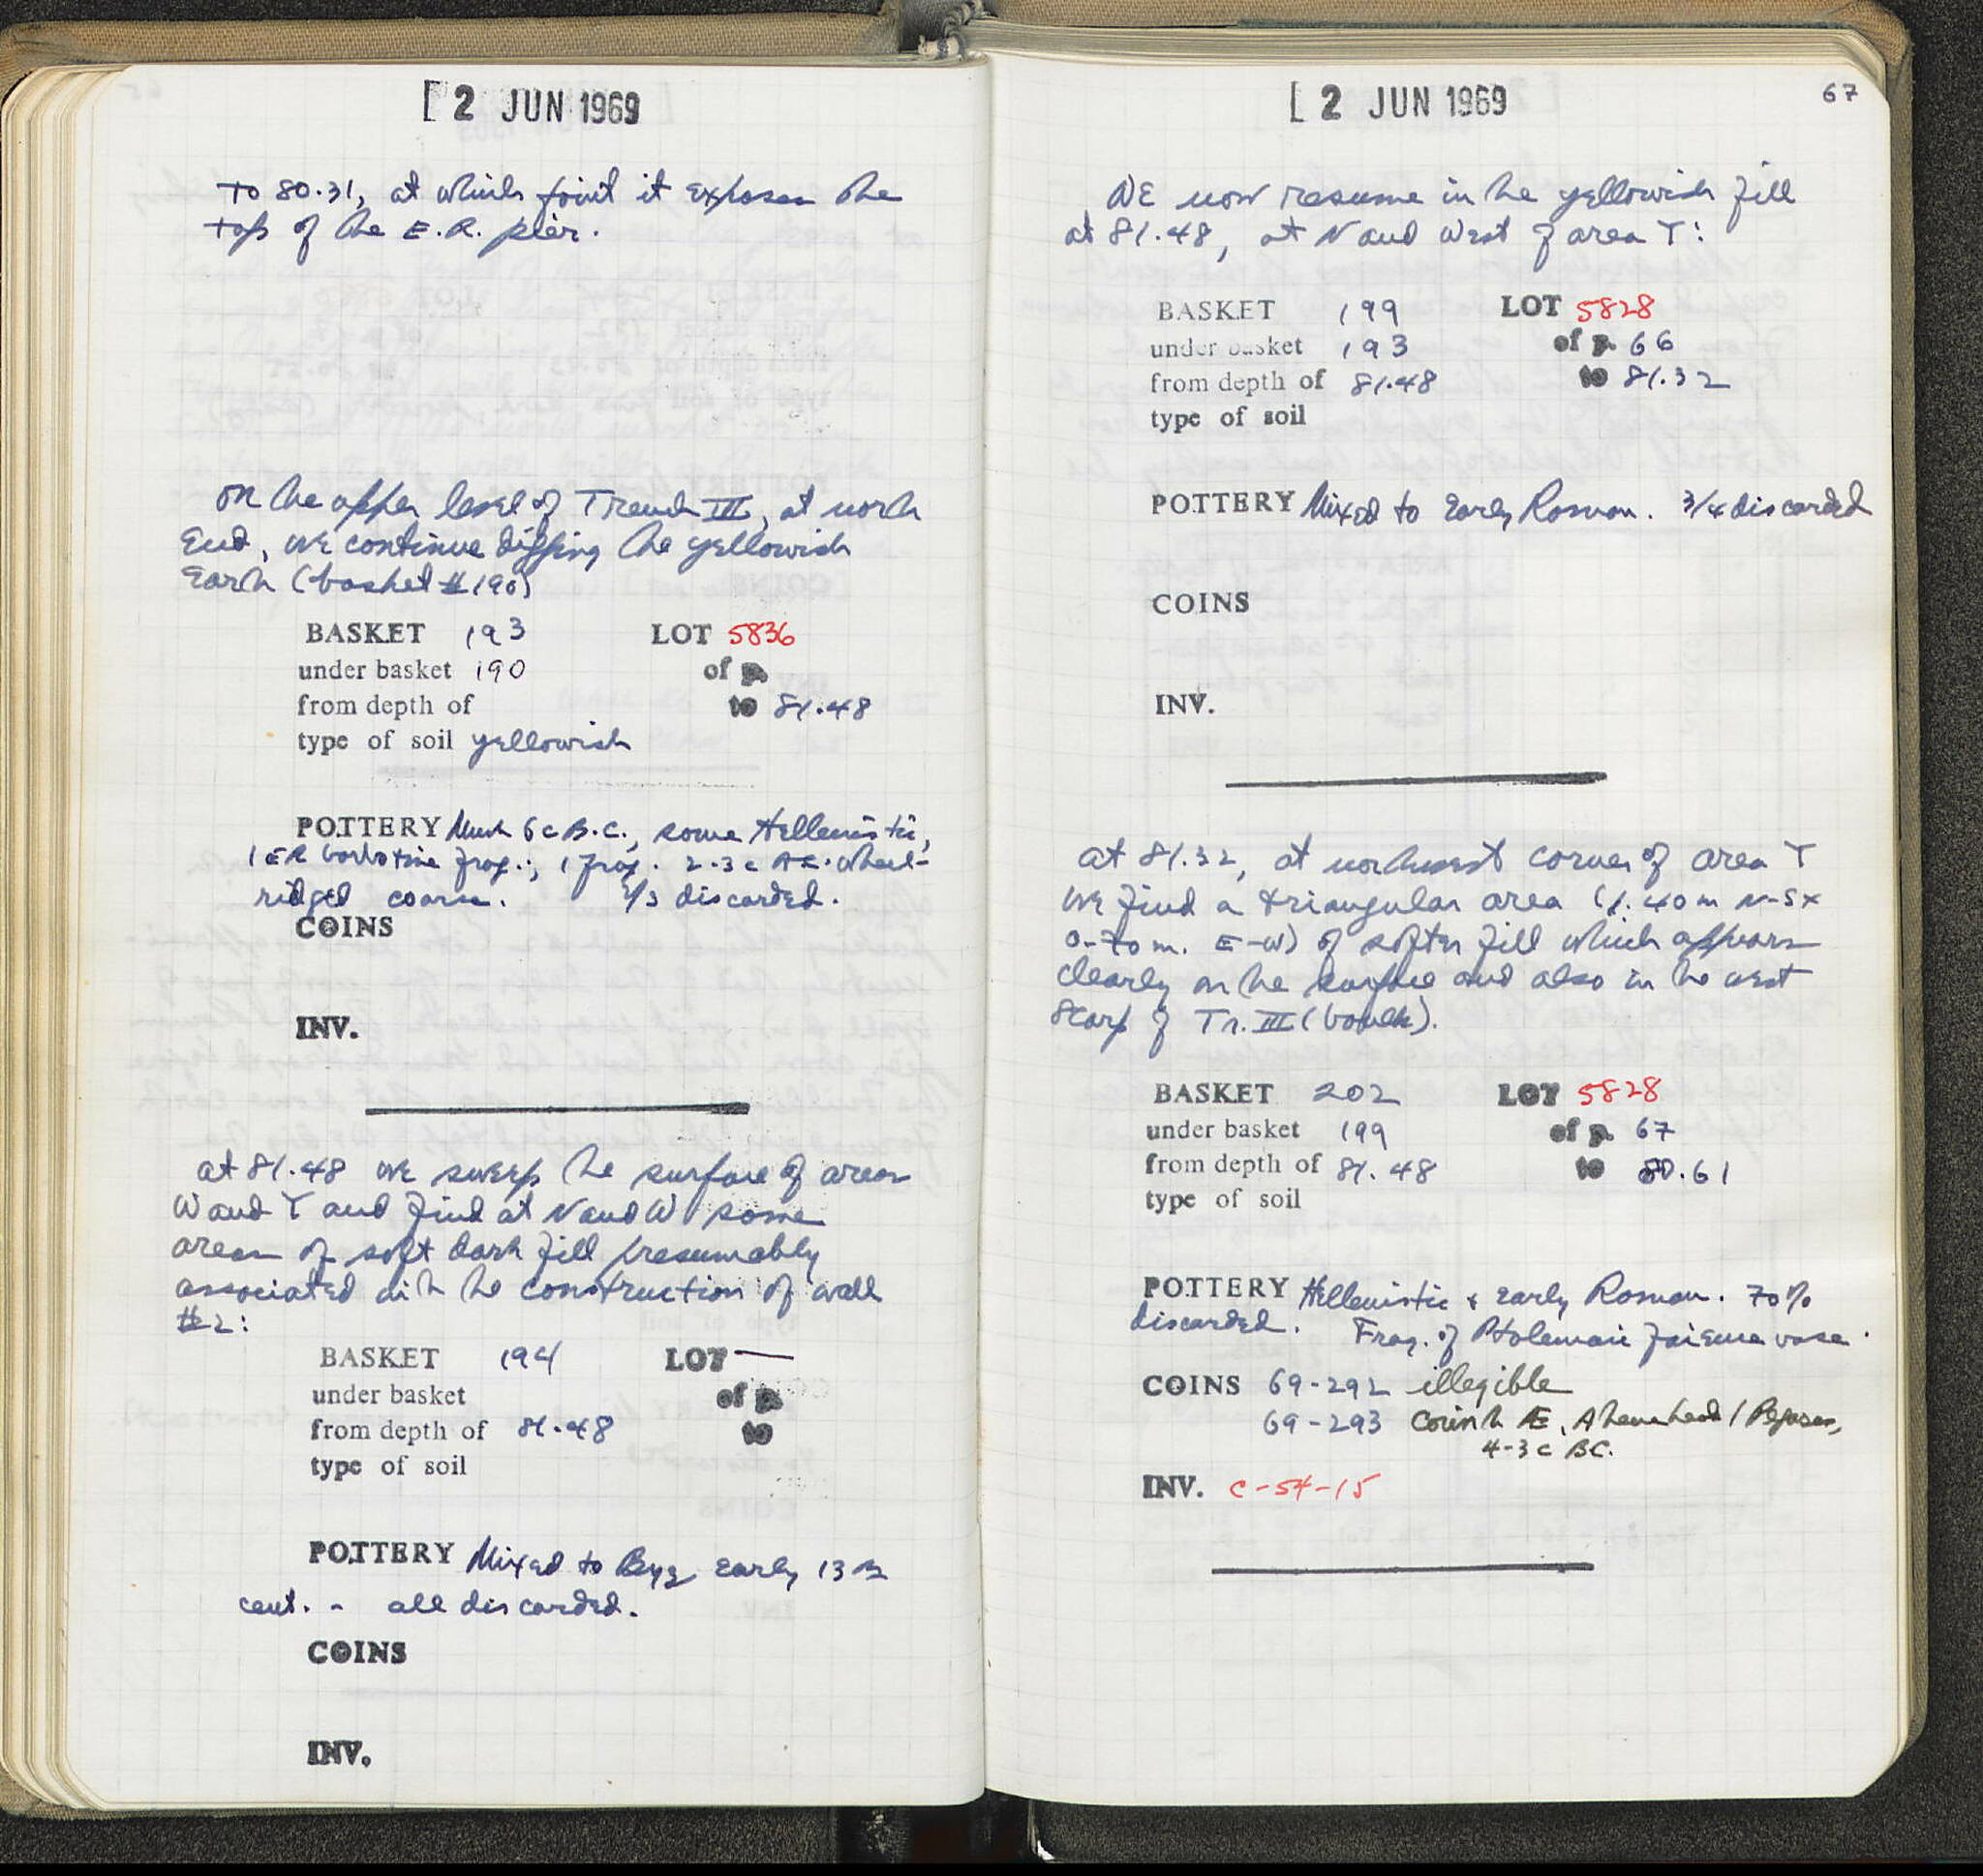 [2 JUN 1969
to 80.31, at which point it exposes the
top of the E.R. pier.
On the upper level of Trench III, at north
end, we continue digging the yellowish
earth (basket #190)
BASKET 193 LOT 5836
under basket 190 of p.
from depth of to 81.48
type of soil yellowish
POTTERY Much 6 c B.C., some Hellenistic,
1 ER barbotine frag.; 1 frag. 2-3 c AC. wheel-
ridged coarse. 2/3 discarded.
COINS
INV.
at 81.48 we sweep the surface of areas
W and T and find at N and W some
areas of soft dark fill presumably
associated with the construction of wall
#2:
BASKET 194 LOT —
under basket of p.
from depth of 81.48 to
type of soil
POTTERY Mixed to Byz early 13th
cent. - all discarded.
COINS
INV.
[2 JUN 1969
67
We now resume in the yellowish fill
at 81.48, at N and West of area T:
BASKET 199 LOT 5828
under basket 193 of p. 66
from depth of 81.48 to 81.32
type of soil
POTTERY Mixed to Early Roman. 3/4 discarded
COINS
INV.
at 81.32, at northwest corner of area T
we find a triangular area (1.40m N-S x
0.70m. E-W) of softer fill which appears
clearly on the surface and also in the west
scarp of Tr. III (baulk).
BASKET 202 LOT 5828
under basket 199 of p. 67
from depth of 81.48 to 80.61
type of soil
POTTERY Hellenistic & Early Roman. 70%
discarded. Frag. of Ptolemaic faience vase.
COINS 69-292 illegible
69-293 Corinth Æ, Athena head / Pegasus,
4-3 c BC.
INV. C-54-15